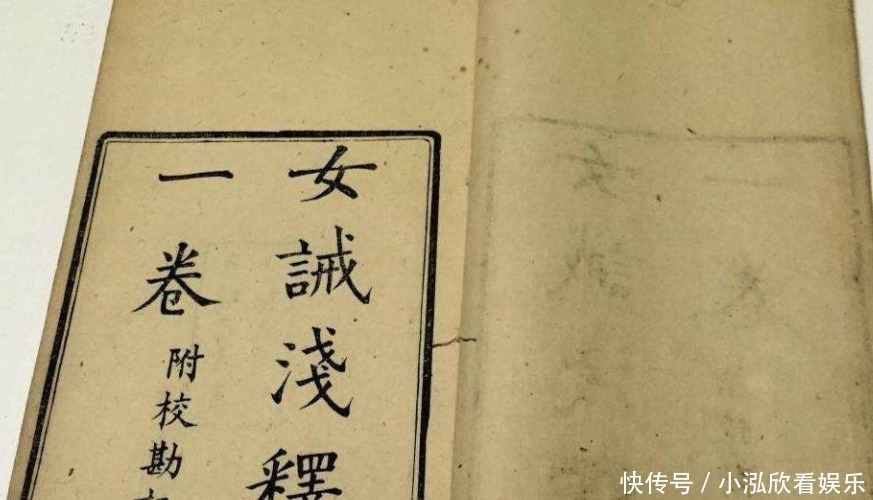 女誡淺釋
一卷附校勘
快传号/小泓欣看娱乐